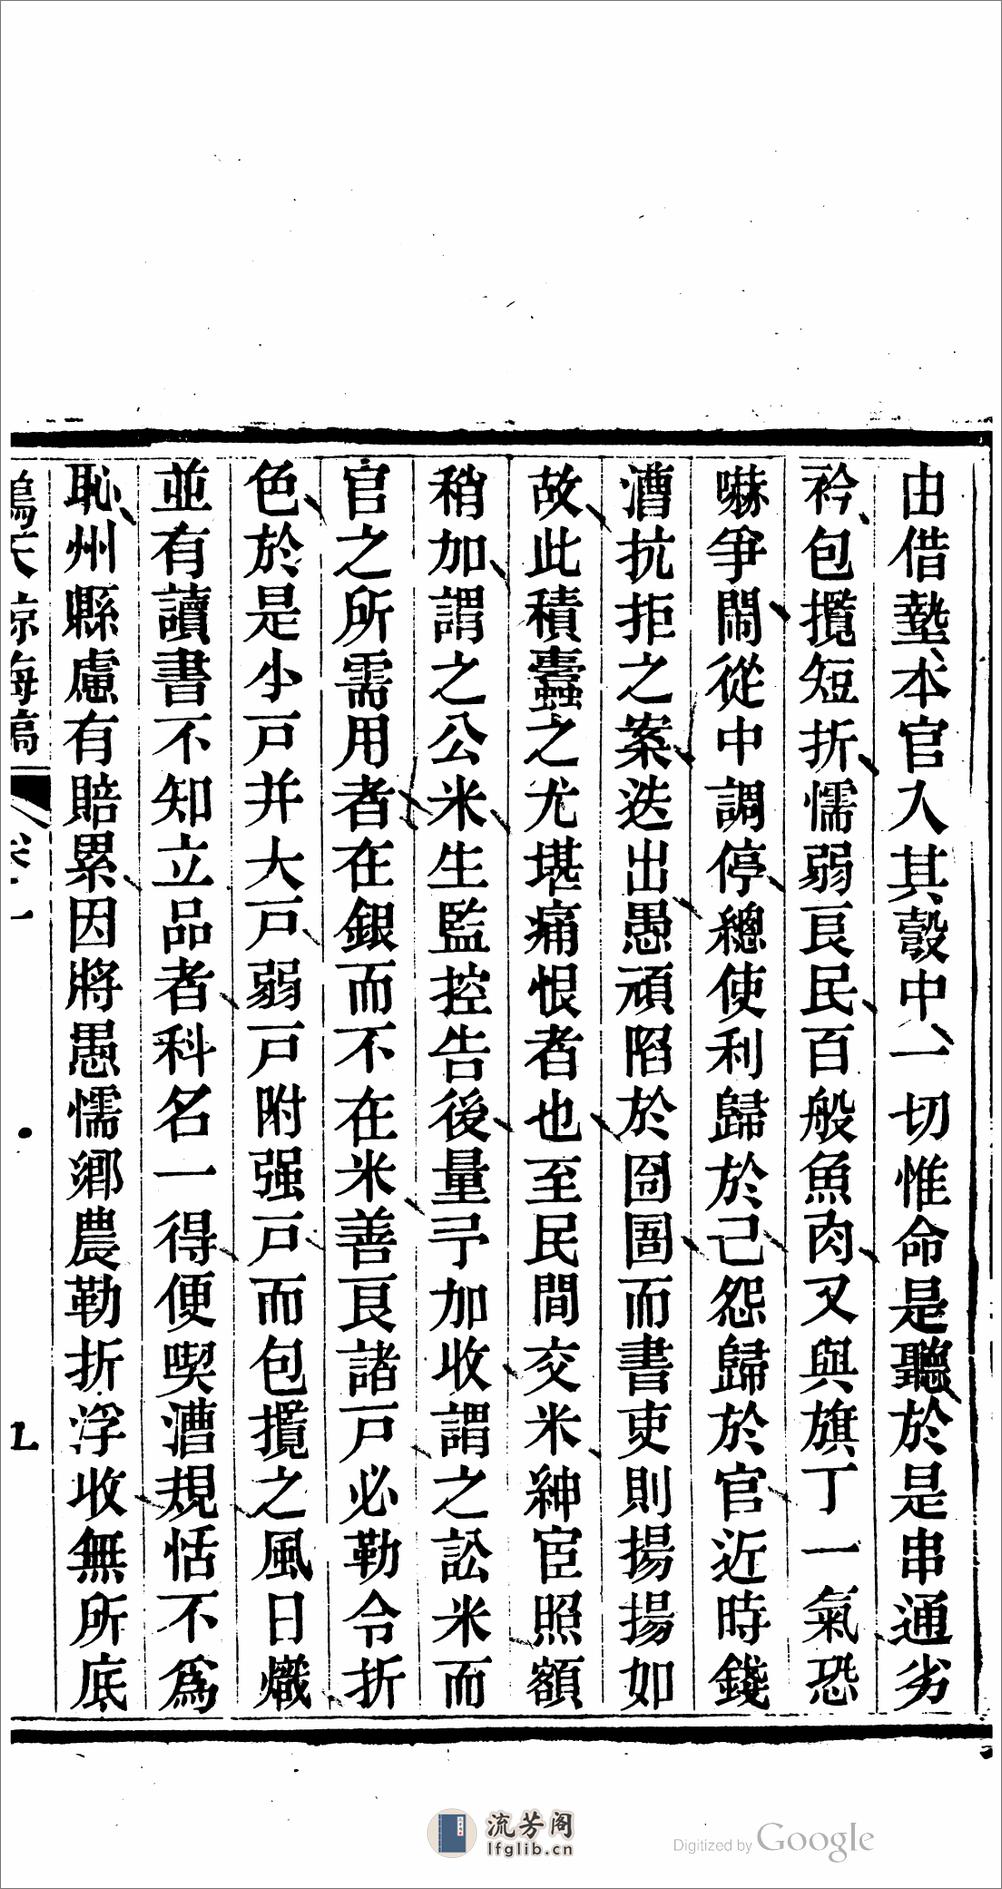 由借墊本官入其彀中一切惟命是聽於是串通劣
衿包攬短折懦弱良民百般魚肉又與旗丁一氣恐
嚇爭鬧從中調停總使利歸於己怨歸於官近時錢
漕抗拒之案迭出愚頑陷於囹圄而書吏則揚揚如
故此積蠹之尤堪痛恨者也至民間交米紳宦照額
稍加謂之公米生監控告後量予加收謂之訟米而
官之所需用者在銀而不在米善良諸戶必勒令折
色於是小戶并大戶弱戶附强戶而包攬之風日熾
並有讀書不知立品者科名一得便喫漕規恬不為
恥州縣慮有賠累因將愚懦鄉農勒折浮收無所底
流芳阁
lfglib.cn
Digitized by Google